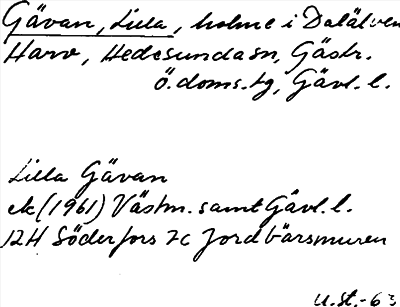 Gävan, Lilla, holme i Dalälven
Harv, Hedesunda sn, Gästr.
Ö. doms.tg, Gävl. l.
Lilla Gävan
ek (1961) Västm. samt Gävl. l.
12H Söderfors 7c Jordbärsmuren
U.St.-63